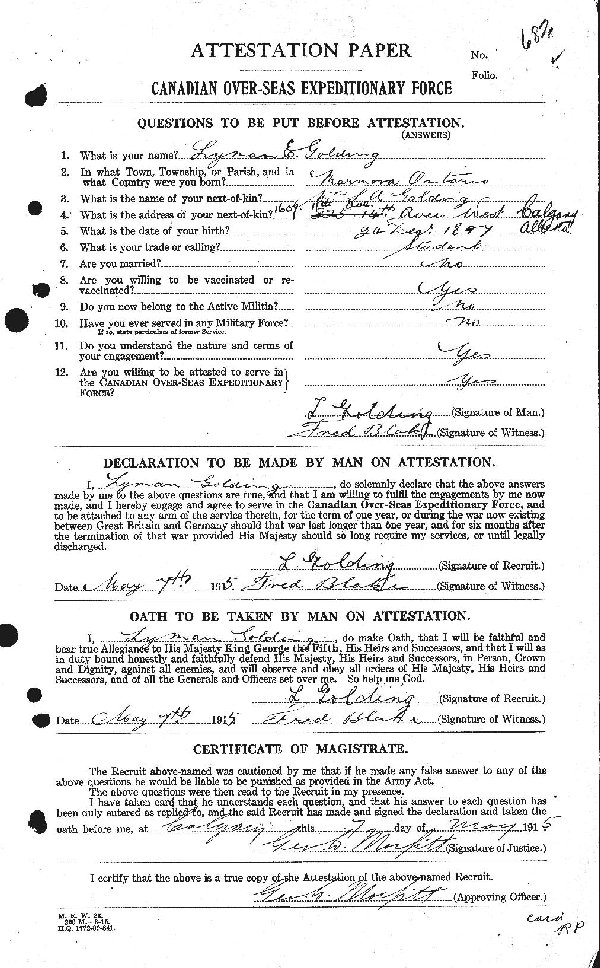 ATTESTATION PAPER
No.
Folio.
CANADIAN OVER-SEAS EXPEDITIONARY FORCE
QUESTIONS TO BE PUT BEFORE ATTESTATION.
(ANSWERS)
1. What is your name? Lyman E Golding
2. In what Town, Township, or Parish, and in
what Country were you born? Marmora Ontario
3. What is the name of your next-of-kin? Golding
4. What is the address of your next-of-kin? 1609 14th Ave West Calgary
Alberta
5. What is the date of your birth? Sept 1897
6. What is your trade or calling? Student
7. Are you married? No
8. Are you willing to be vaccinated or re-
vaccinated? Yes
9. Do you now belong to the Active Militia? No
10. Have you ever served in any Military Force? No
If so, state particulars of former Service.
11. Do you understand the nature and terms of
your engagement? Yes
12. Are you willing to be attested to serve in
the CANADIAN OVER-SEAS EXPEDITIONARY Yes
FORCE?
L Golding (Signature of Man.)
Fred Blake (Signature of Witness.)
DECLARATION TO BE MADE BY MAN ON ATTESTATION.
I, Lyman Golding, do solemnly declare that the above answers
made by me to the above questions are true, and that I am willing to fulfil the engagements by me now
made, and I hereby engage and agree to serve in the Canadian Over-Seas Expeditionary Force, and
to be attached to any arm of the service therein, for the term of one year, or during the war now existing
between Great Britain and Germany should that war last longer than one year, and for six months after
the termination of that war provided His Majesty should so long require my services, or until legally
discharged.
L Golding (Signature of Recruit.)
Date May 7th 1915 Fred Blake (Signature of Witness.)
OATH TO BE TAKEN BY MAN ON ATTESTATION.
I, Lyman Golding, do make Oath, that I will be faithful and
bear true Allegiance to His Majesty King George the Fifth, His Heirs and Successors, and that I will as
in duty bound honestly and faithfully defend His Majesty, His Heirs and Successors, in Person, Crown
and Dignity, against all enemies, and will observe and obey all orders of His Majesty, His Heirs and
Successors, and of all the Generals and Officers set over me. So help me God.
L Golding (Signature of Recruit.)
Date May 7th 1915 Fred Blake (Signature of Witness.)
CERTIFICATE OF MAGISTRATE.
The Recruit above-named was cautioned by me that if he made any false answer to any of the
above questions he would be liable to be punished as provided in the Army Act.
The above questions were then read to the Recruit in my presence.
I have taken card that he understands each question, and that his answer to each question has
been only entered as replied to, and the said Recruit has made and signed the declaration and taken the
oath before me, at Calgary this 7 day of May 1915
(Signature of Justice.)
I certify that the above is a true copy of the Attestation of the above-named Recruit.
(Approving Officer.)
M. F. W. 23.
H.Q. 1772-39-841.